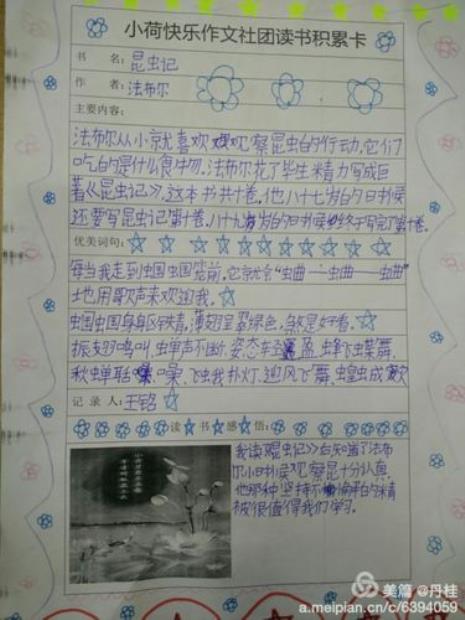 小荷快乐作文社团读书积累卡
书 名:昆虫记
作 者:法布尔
主要内容:
法布尔从小就喜欢观察昆虫的行动,它们
吃的是什么食物。法布尔花了毕生精力写成巨
著《昆虫记》,这本书共十卷。他八十七岁的时候
还要写昆虫记第十卷。八十九岁的时候终于写完了第十卷。
优美词句:
每当我走到蝈蝈笼前,它就会“蛐——蛐——蛐”
地用歌声来欢迎我。
蝈蝈身躯铁青,薄翅呈翠绿色,煞是好看。
振翅鸣叫、蝉声不断、姿态轻盈、蜂飞蝶舞、
秋蝉聒噪、飞蛾扑灯、迎风飞舞、蝗虫成灾
记 录 人:王铭
读 书 感 悟:
我读《昆虫记》后知道了法布
尔小时候观察昆虫十分认真,
他那种坚持不懈的精
神很值得我们学习。
美篇 @丹桂
a.meipian.cn/c/6394059